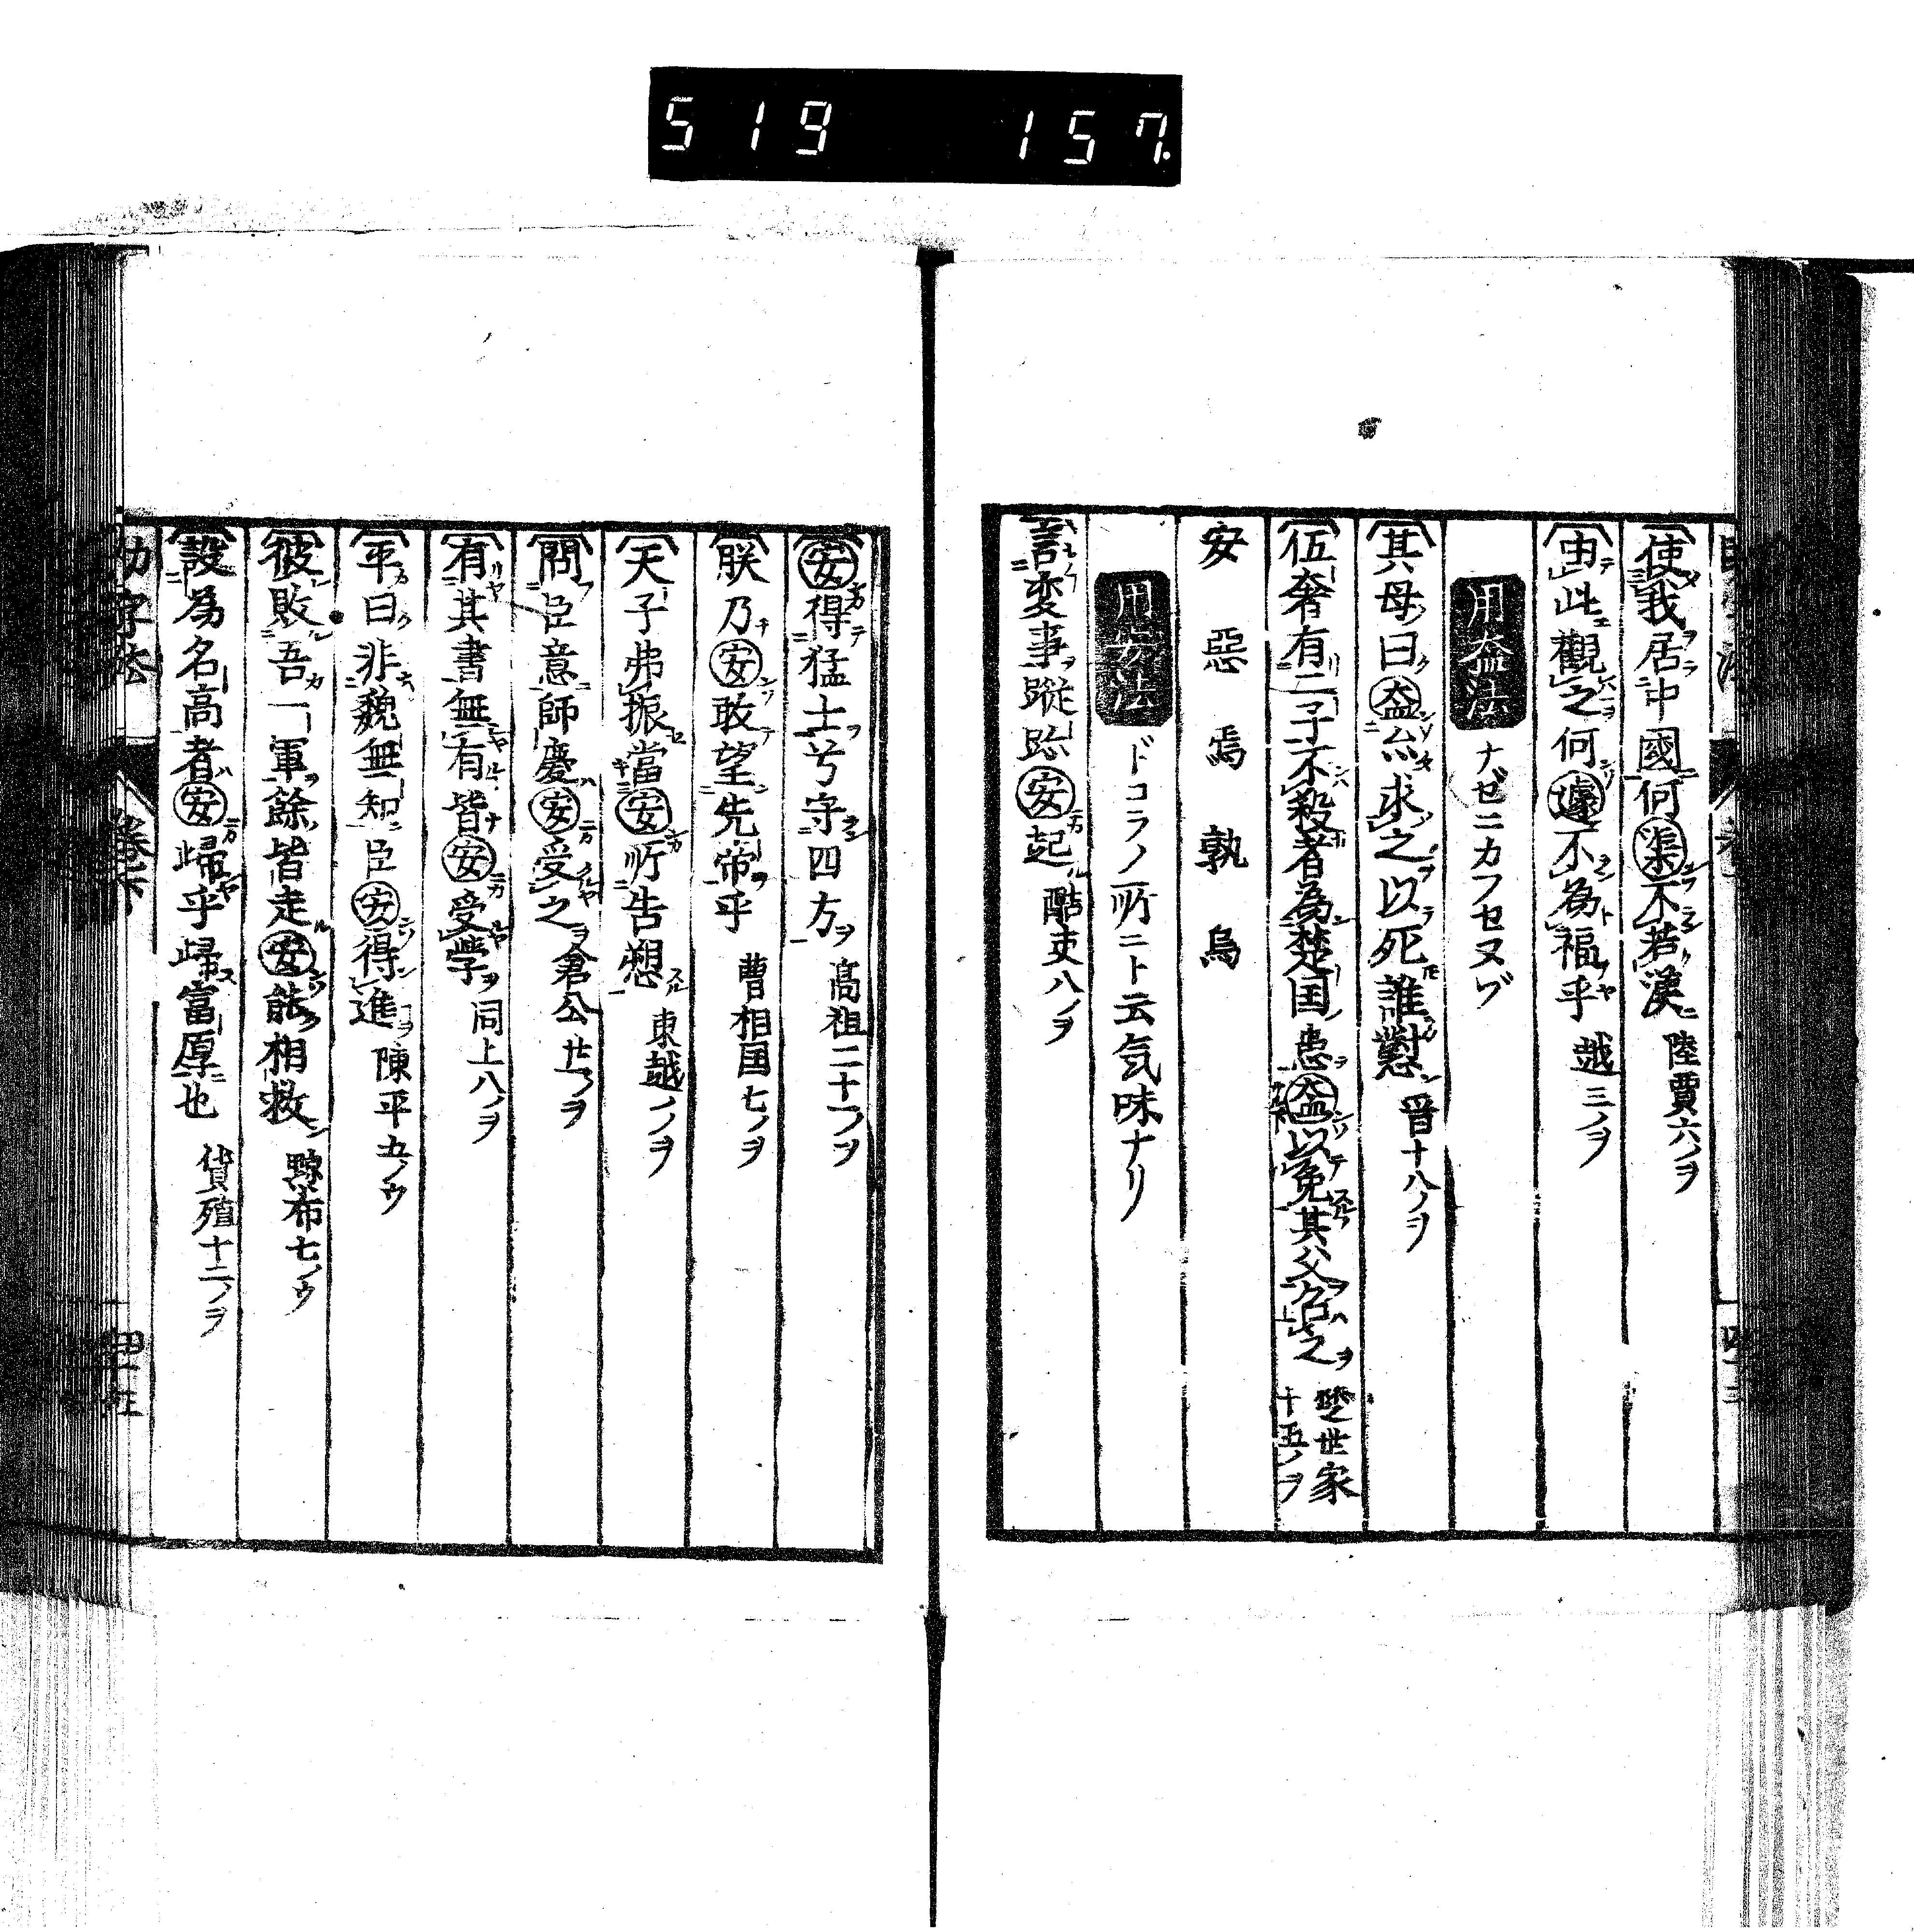 519 157.
使我居中國何渠不若漢 陸賈六ノヲ
由此觀之何遽不為福乎 越三ノヲ
用盍法 ナゼニカフセヌゾ
其母曰盍亦求之以死誰懟 晉十八ノヲ
伍奢有二子不殺者為楚国患盍以免其父召之 楚世家十五ノヲ
安惡焉孰烏
用安法 ドコラノ所ニト云気味ナリ
言変事蹤跡安起 酷吏八ノヲ
安得猛士兮守四方 高祖二十一ノヲ
朕乃安敢望先帝乎 曹相国七ノヲ
天子弗振當安所告愬 東越一ノヲ
問臣意師慶安受之 倉公廿一ノヲ
有其書無有皆安受学 同上八ノヲ
平曰非魏無知臣安得進 陳平五ノウ
彼敗吾一軍餘皆走安能相救 黥布七ノウ
設為名高者安歸乎歸富厚也 貨殖十二ノヲ
助字法 卷下